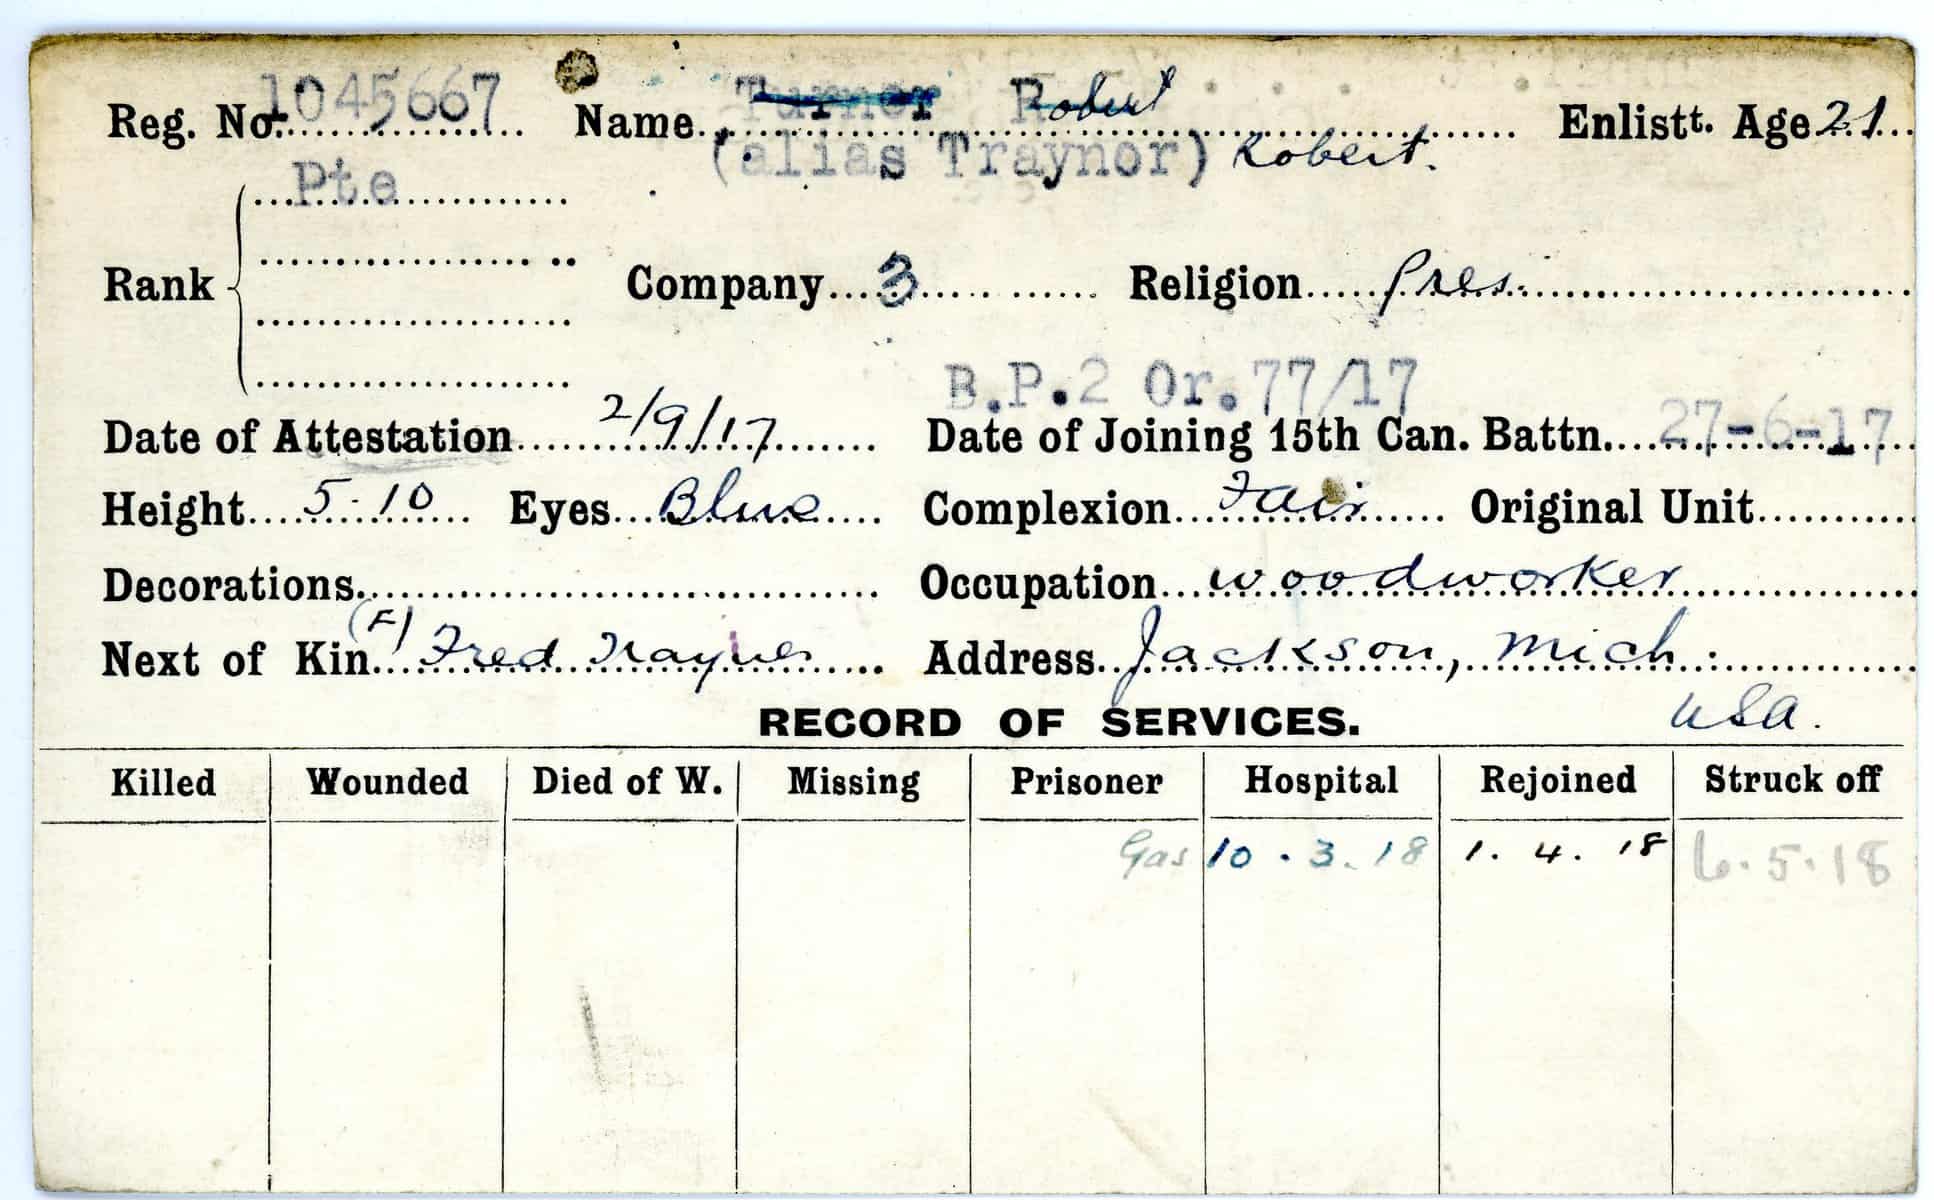 Reg. No. 1045667 Name Turner Robert Enlistt. Age 21
(alias Traynor) Robert.
Pte
Rank Company 3 Religion Pres.
B.P.2 Or.77/17
Date of Attestation 2/9/17 Date of Joining 15th Can. Battn. 27-6-17
Height 5-10 Eyes Blue Complexion Fair Original Unit
Decorations Occupation woodworker
Next of Kin (F) Fred Traynor Address Jackson, Mich.
RECORD OF SERVICES. USA.
Killed Wounded Died of W. Missing Prisoner Hospital Rejoined Struck off
Gas 10.3.18 1.4.18 6.5.18